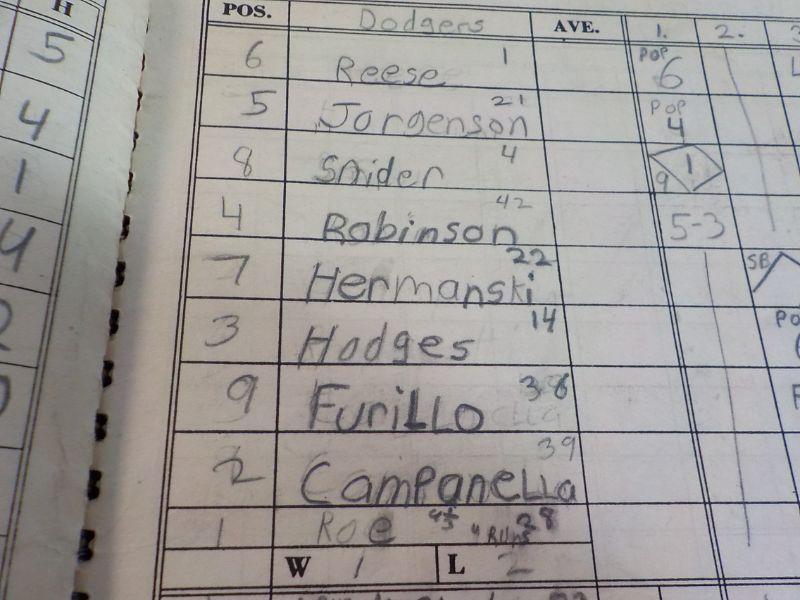 H
5
4
1
4
POS. Dodgers AVE. 1. 2. 3
6 Reese 1 POP 6
5 Jorgenson 21 POP 4
8 Snider 4 1 9
4 Robinson 42 5-3
7 Hermanski 22 SB
3 Hodges 14 PO
9 Furillo 36 F
2 Campanella 39
1 Roe 28
W 1 L 2